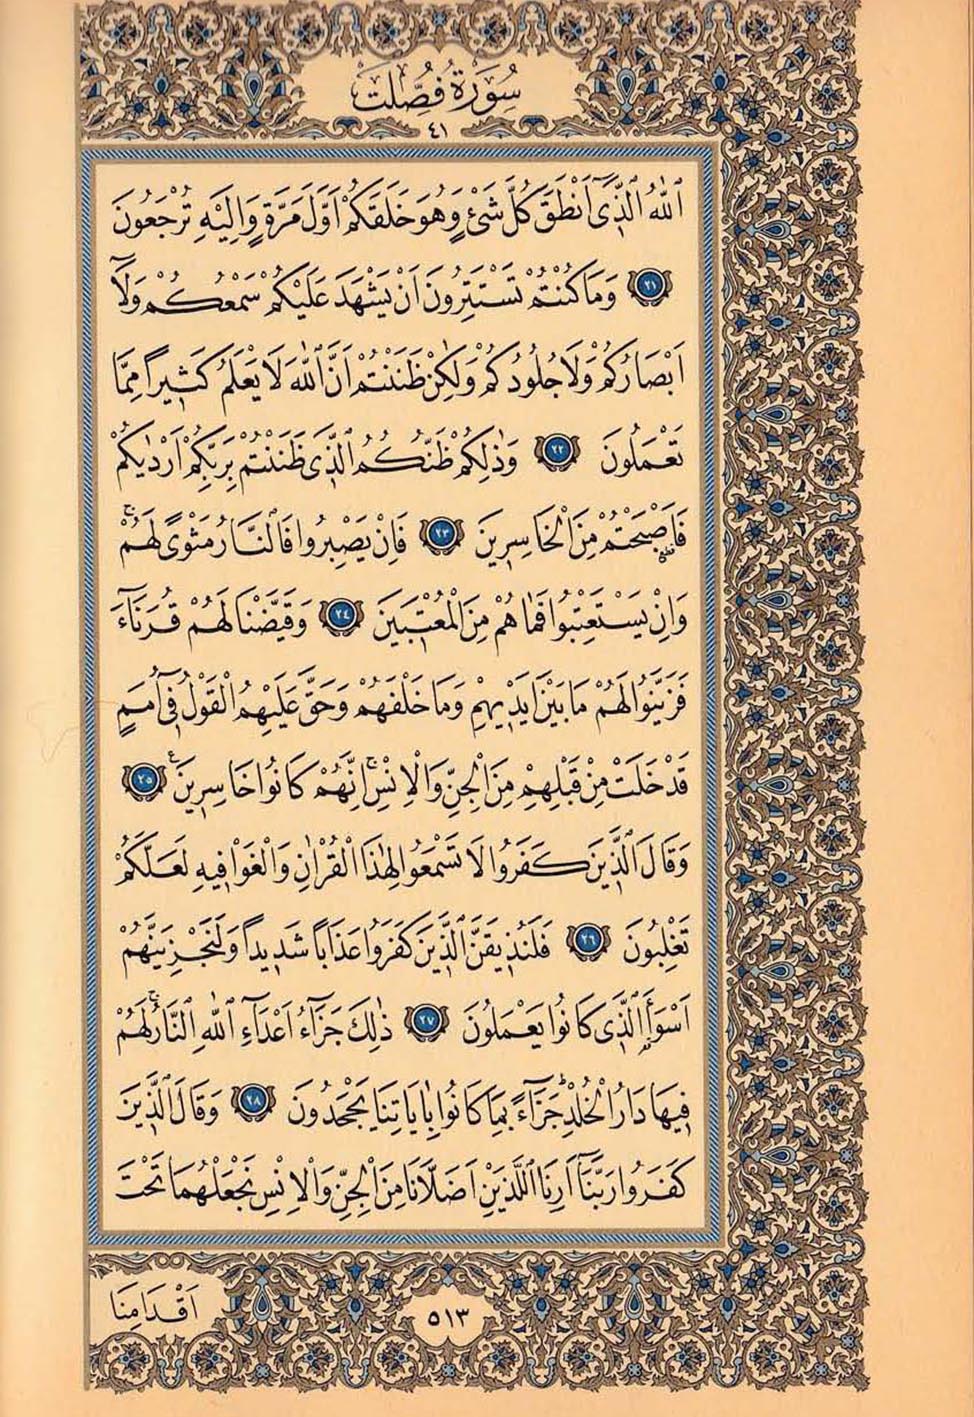 سُورَةُ فُصِّلَتْ
٤١
اَللّٰهُ الَّذٖٓى اَنْطَقَ كُلَّ شَىْءٍ وَهُوَ خَلَقَكُمْ اَوَّلَ مَرَّةٍ وَاِلَيْهِ تُرْجَعُونَ
٢١ وَمَا كُنْتُمْ تَسْتَتِرُونَ اَنْ يَشْهَدَ عَلَيْكُمْ سَمْعُكُمْ وَلَٓا
اَبْصَارُكُمْ وَلَا جُلُودُكُمْ وَلٰكِنْ ظَنَنْتُمْ اَنَّ اللّٰهَ لَا يَعْلَمُ كَثٖيراً مِمَّا
تَعْمَلُونَ ٢٢ وَذٰلِكُمْ ظَنُّكُمُ الَّذٖى ظَنَنْتُمْ بِرَبِّكُمْ اَرْدٰيكُمْ
فَاَصْبَحْتُمْ مِنَ الْخَاسِرٖينَ ٢٣ فَاِنْ يَصْبِرُوا فَالنَّارُ مَثْوًى لَهُمْۚ
وَاِنْ يَسْتَعْتِبُوا فَمَا هُمْ مِنَ الْمُعْتَبٖينَ ٢٤ وَقَيَّضْنَا لَهُمْ قُرَنَٓاءَ
فَزَيَّنُوا لَهُمْ مَا بَيْنَ اَيْدٖيهِمْ وَمَا خَلْفَهُمْ وَحَقَّ عَلَيْهِمُ الْقَوْلُ فٖٓى اُمَمٍ
قَدْ خَلَتْ مِنْ قَبْلِهِمْ مِنَ الْجِنِّ وَالْاِنْسِۚ اِنَّهُمْ كَانُوا خَاسِرٖينَ ع ٢٥
وَقَالَ الَّذٖينَ كَفَرُوا لَا تَسْمَعُوا لِهٰذَا الْقُرْاٰنِ وَالْغَوْا فٖيهِ لَعَلَّكُمْ
تَغْلِبُونَ ٢٦ فَلَنُذٖيقَنَّ الَّذٖينَ كَفَرُوا عَذَاباً شَدٖيداً وَلَنَجْزِيَنَّهُمْ
اَسْوَاَ الَّذٖى كَانُوا يَعْمَلُونَ ٢٧ ذٰلِكَ جَزَٓاءُ اَعْدَٓاءِ اللّٰهِ النَّارُۚ لَهُمْ
فٖيهَا دَارُ الْخُلْدِؕ جَزَٓاءً بِمَا كَانُوا بِاٰيَاتِنَا يَجْحَدُونَ ٢٨ وَقَالَ الَّذٖينَ
كَفَرُوا رَبَّنَٓا اَرِنَا الَّذَيْنِ اَضَلَّانَا مِنَ الْجِنِّ وَالْاِنْسِ نَجْعَلْهُمَا تَحْتَ
اَقْدَامِنَا
٥١٣